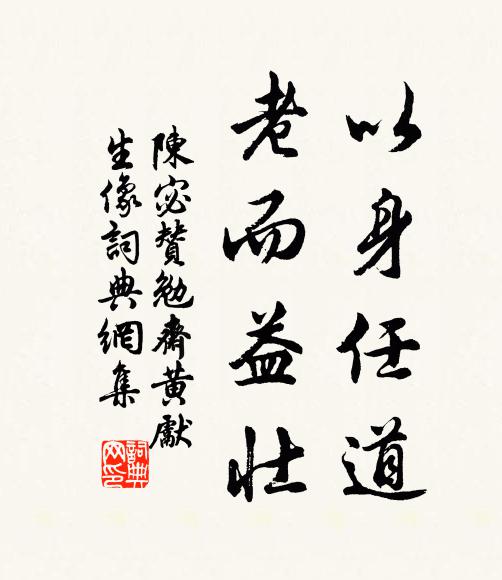 以身任道
老而益壯
陳宓贊勉齋黃獻
生像詞典網集
詞典
网印